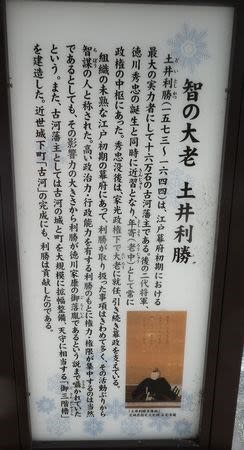 智の大老 土井利勝
どいとしかつ
土井利勝(一五七三〜一六四四)は、江戸幕府初期における
最大の実力者にして十六万石の古河藩主である。後の二代将軍、
徳川秀忠の誕生と同時に近習となり、年寄(老中)として常に
政権の中枢にあった。秀忠没後は、家光政権下で大老に就任、引き続き幕政を支えている。
組織の未熟な江戸初期の幕府にあって、利勝が取り扱った事項はきわめて多く、その活動ぶりから
智謀の人と称された。高い政治力・行政能力を有する利勝のもとに権力・権限が集中するのは当然
であるとしても、その影響力の大きさから利勝が徳川家康の御落胤であるという説まで囁かれていた
という。また、古河藩主としては古河の城と町を大規模に拡幅整備、天守に相当する「御三階櫓」
を建造した。近世城下町「古河」の完成にも、利勝は貢献したのである。